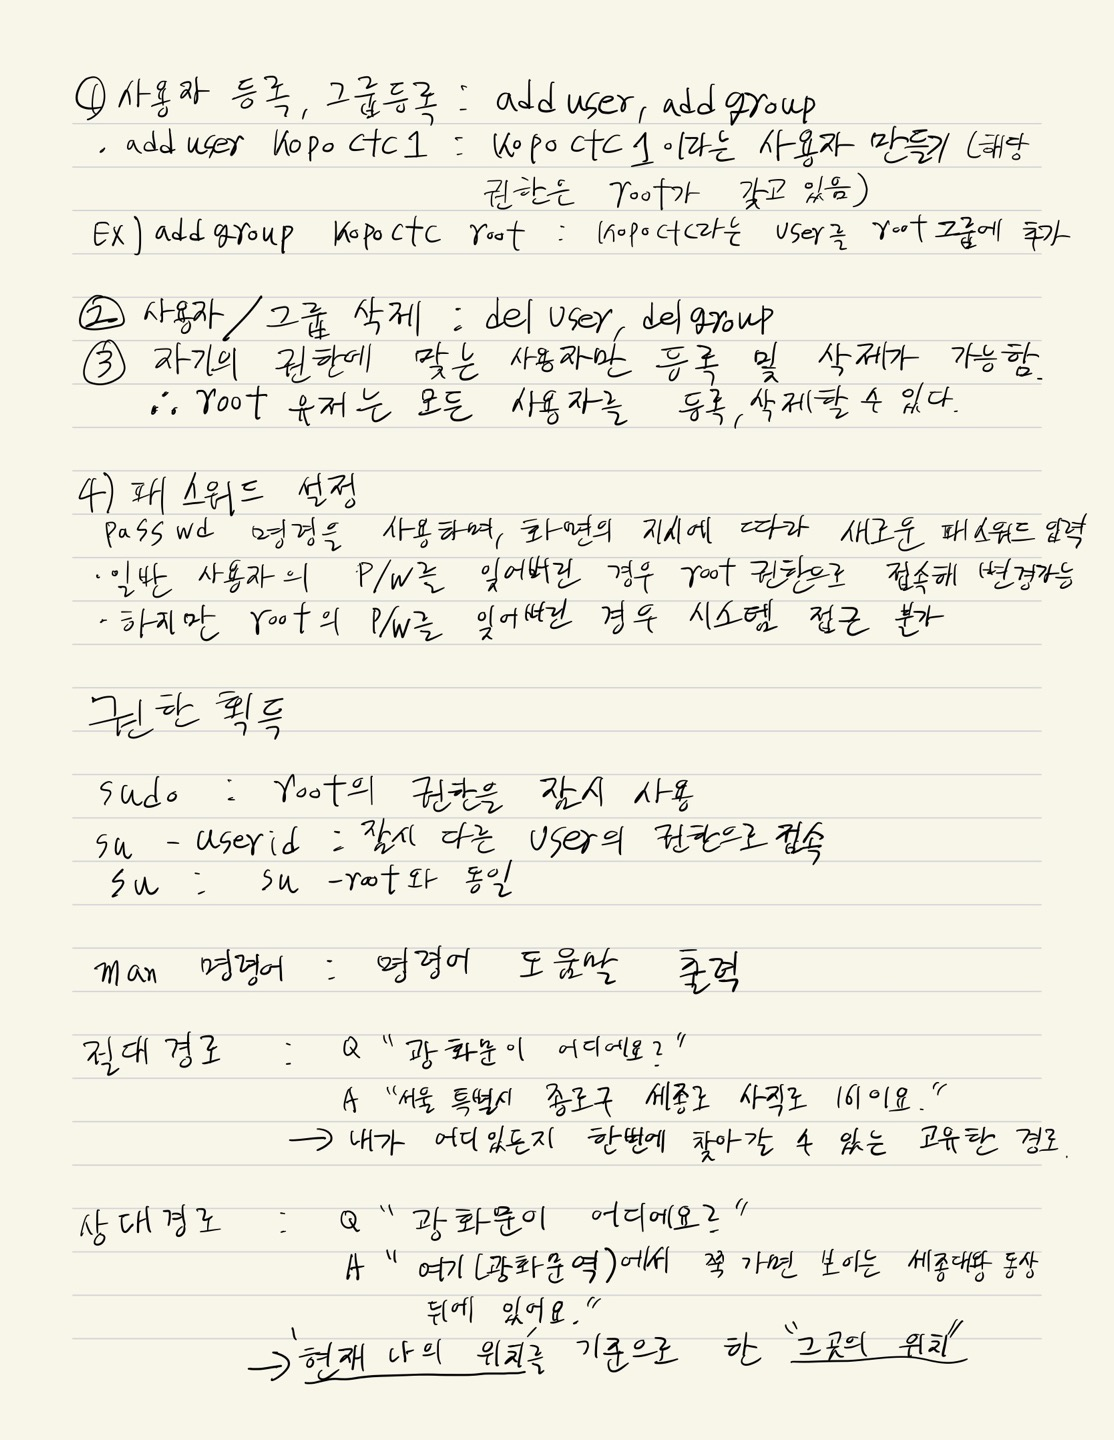 ① 사용자 등록, 그룹등록 : adduser, addgroup
· adduser kopoctc1 : kopoctc1이라는 사용자 만들기 (해당
권한은 root가 갖고 있음)
EX) addgroup kopoctc root : kopoctc라는 user를 root그룹에 추가
② 사용자/그룹 삭제 : deluser, delgroup
③ 자기의 권한에 맞는 사용자만 등록 및 삭제가 가능함.
∴ root 유저는 모든 사용자를 등록,삭제할 수 있다.
4) 패스워드 설정
passwd 명령을 사용하며, 화면의 지시에 따라 새로운 패스워드 입력
· 일반 사용자의 P/W를 잊어버린 경우 root 권한으로 접속해 변경가능
· 하지만 root의 P/W를 잊어버린 경우 시스템 접근 불가
권한 획득
sudo : root의 권한을 잠시 사용
su - userid : 잠시 다른 user의 권한으로 접속
su : su -root와 동일
man 명령어 : 명령어 도움말 출력
절대경로 : Q "광화문이 어디에요?"
A "서울 특별시 종로구 세종로 사직로 161이요."
→ 내가 어디있든지 한번에 찾아갈 수 있는 고유한 경로.
상대경로 : Q "광화문이 어디에요?"
A "여기(광화문역)에서 쭉 가면 보이는 세종대왕 동상
뒤에 있어요."
→ '현재 나의 위치'를 기준으로 한 "그곳의 위치"